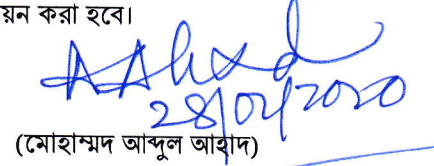 য়ন করা হবে।
AAhad
28/04/2020
(মোহাম্মদ আব্দুল আহাদ)